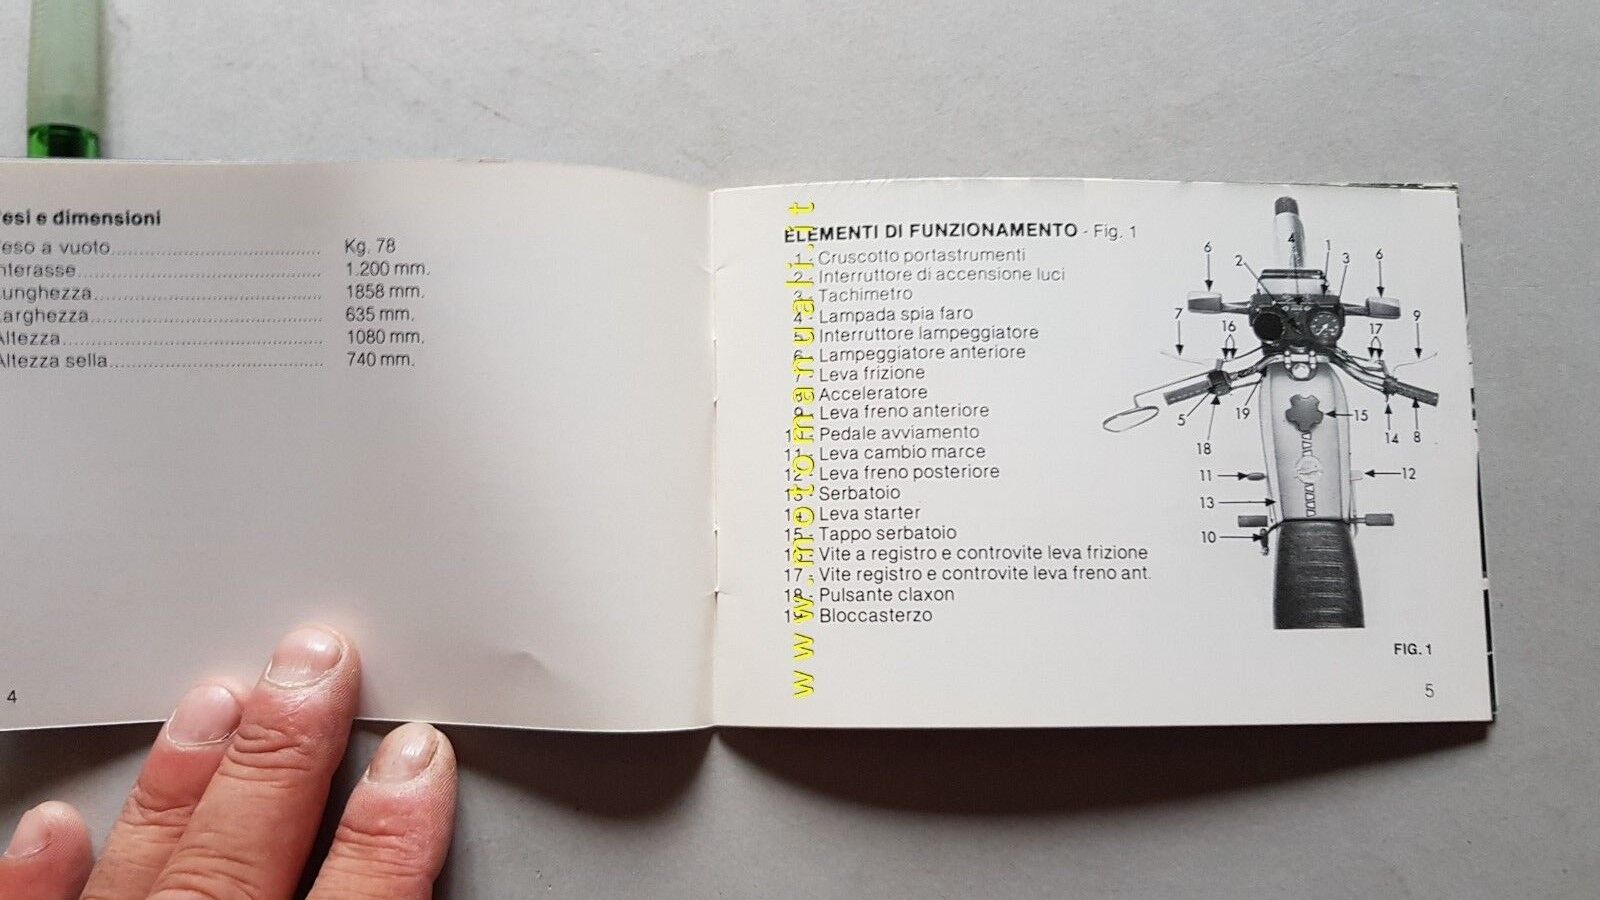 esi e dimensioni
eso a vuoto................................ Kg. 78
nterasse................................ 1.200 mm.
unghezza................................ 1858 mm.
arghezza................................ 635 mm.
Altezza................................ 1080 mm.
Altezza sella................................ 740 mm.
4
ELEMENTI DI FUNZIONAMENTO - Fig. 1
1 - Cruscotto portastrumenti
2 - Interruttore di accensione luci
3 - Tachimetro
4 - Lampada spia faro
5 - Interruttore lampeggiatore
6 - Lampeggiatore anteriore
7 - Leva frizione
8 - Acceleratore
9 - Leva freno anteriore
10 - Pedale avviamento
11 - Leva cambio marce
12 - Leva freno posteriore
13 - Serbatoio
14 - Leva starter
15 - Tappo serbatoio
16 - Vite a registro e controvite leva frizione
17 - Vite registro e controvite leva freno ant.
18 - Pulsante claxon
19 - Bloccasterzo
www.motomanuali.it
6 2 4 1 3 6
7 16 17 9
5 19 15
18 14 8
11 12
13
10
FIG. 1
5